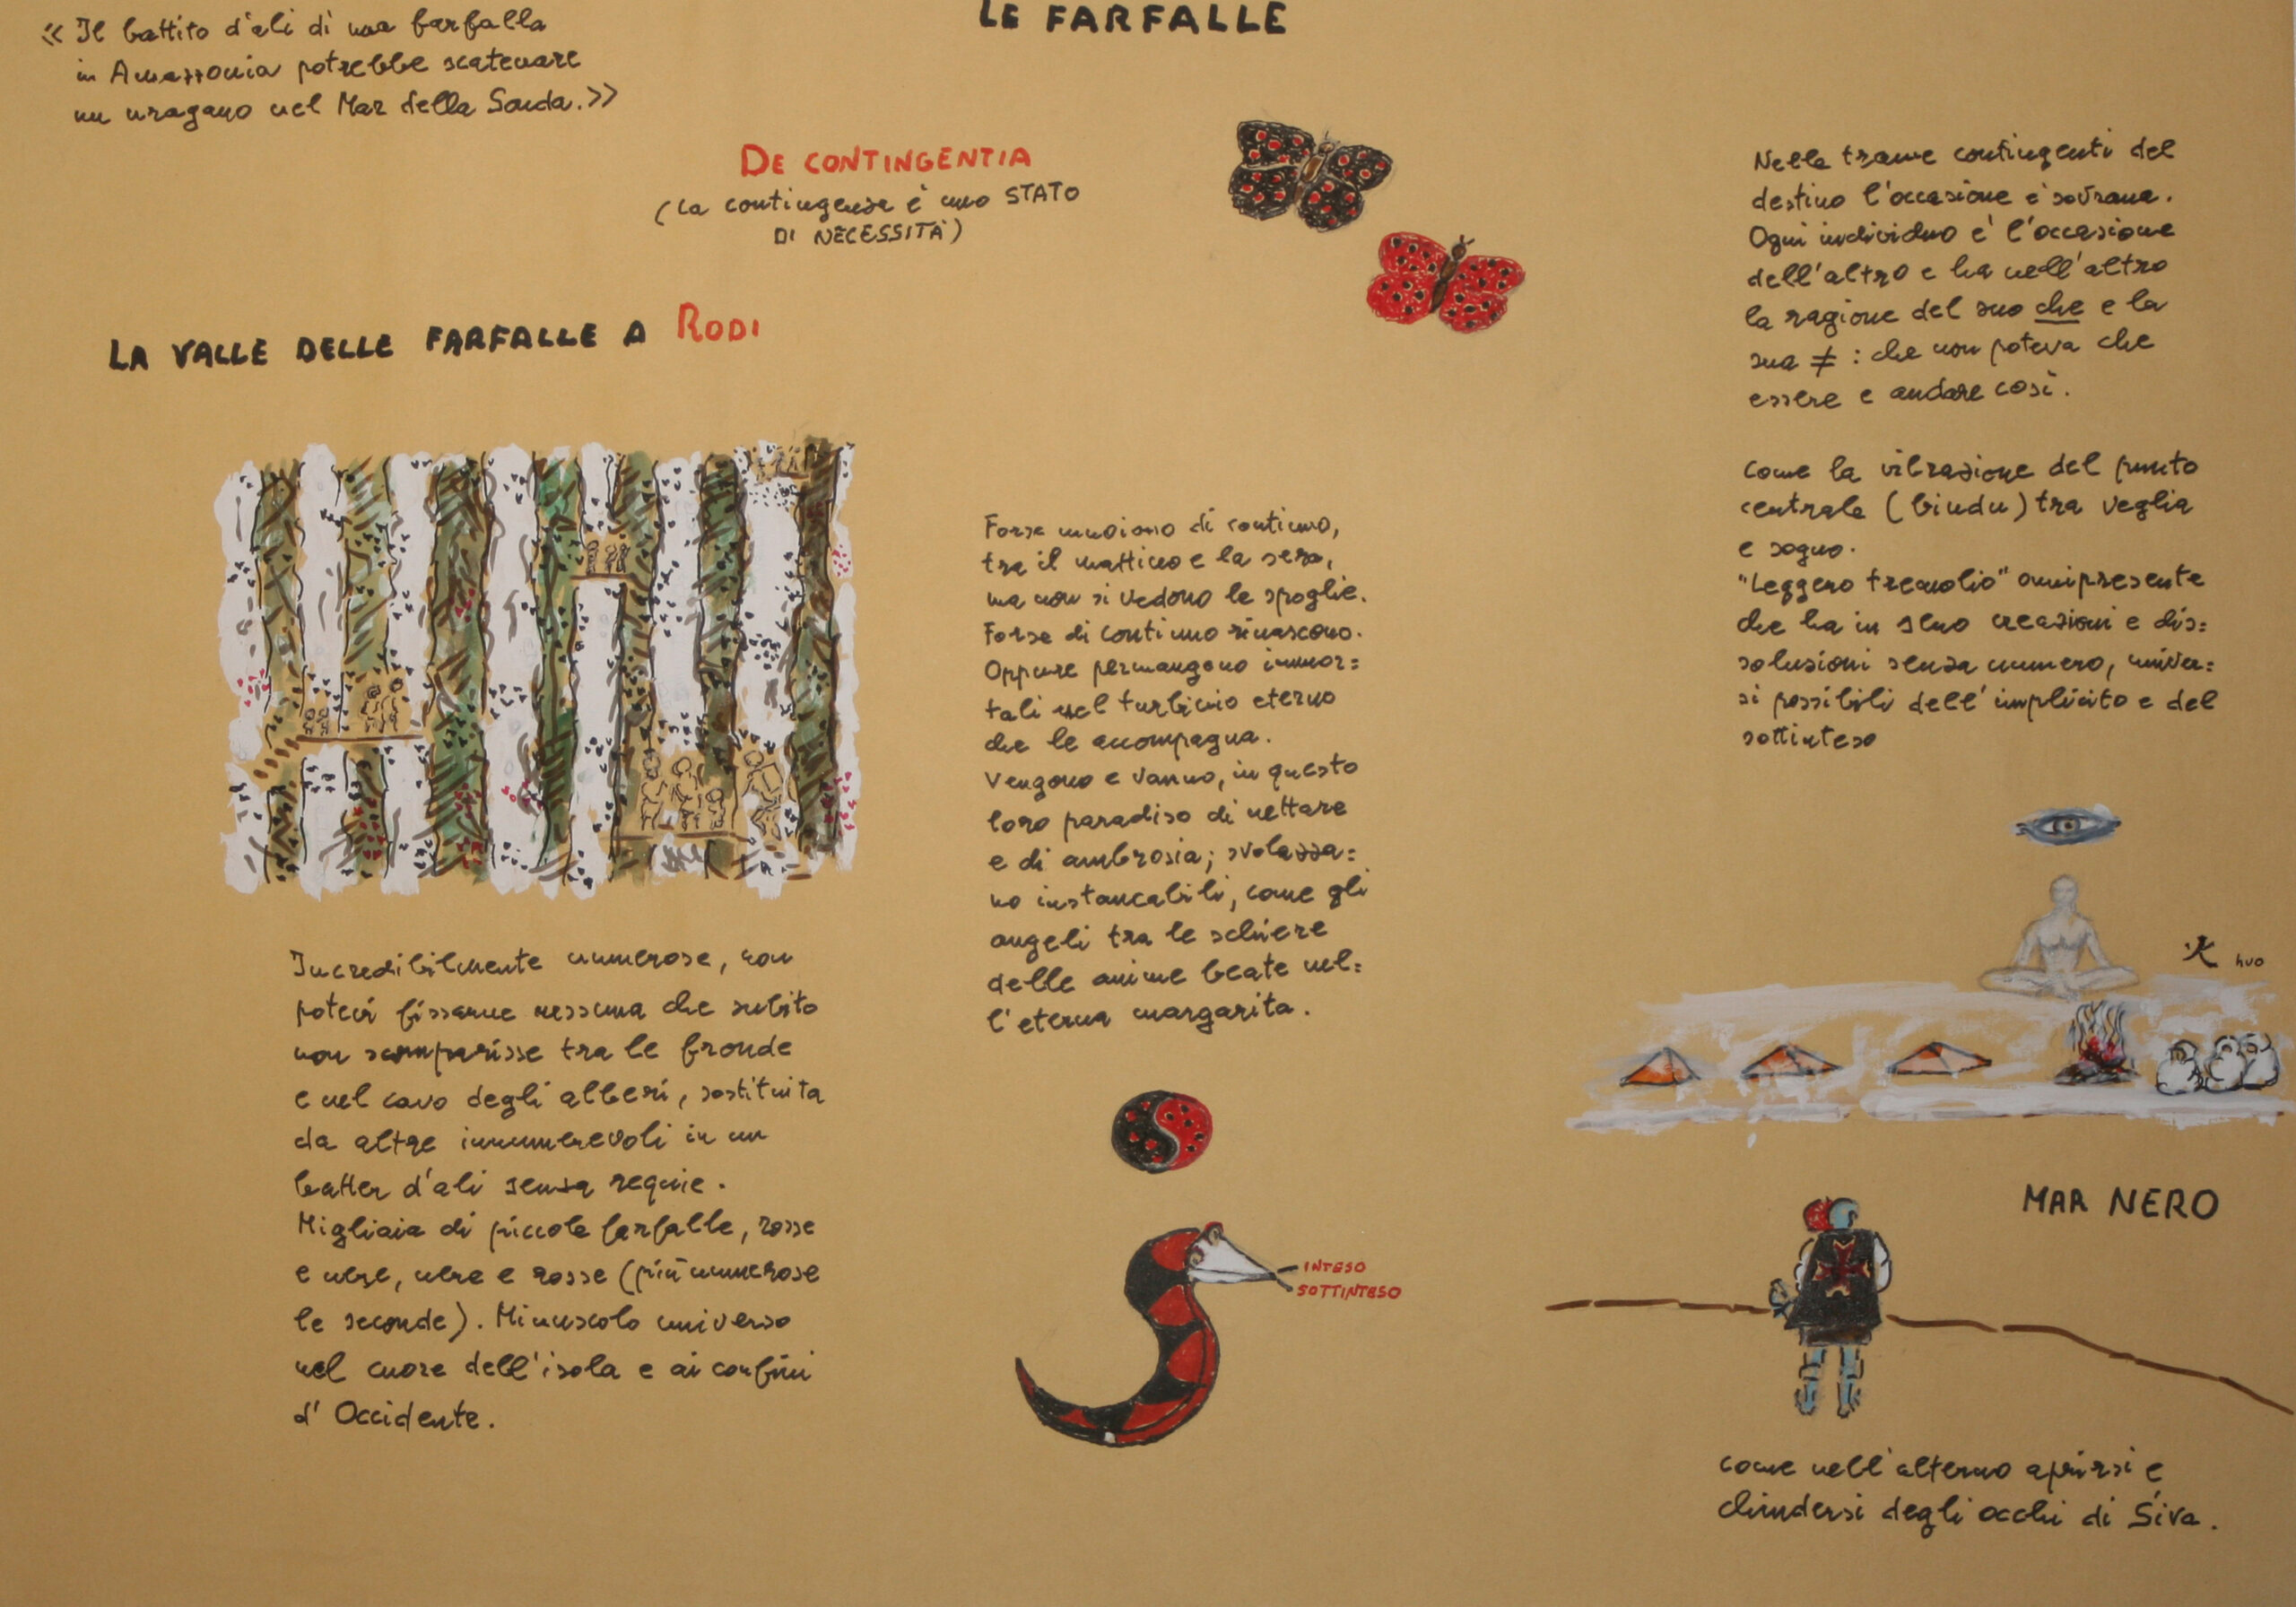 LE FARFALLE
« Il battito d'ali di una farfalla
in Amazzonia potrebbe scatenare
un uragano nel Mar della Sonda.»
DE CONTINGENTIA
(La contingenza è uno STATO
DI NECESSITÀ)
LA VALLE DELLE FARFALLE A RODI
Incredibilmente numerose, non
potevi fissarne nessuna che subito
non scomparisse tra le fronde
e nel cavo degli alberi, sostituita
da altre innumerevoli in un
batter d'ali senza requie.
Migliaia di piccole farfalle, rosse
e nere, nere e rosse (più numerose
le seconde). Minuscolo universo
nel cuore dell'isola e ai confini
d'Occidente.
Forse muoiono di continuo,
tra il mattino e la sera,
ma non si vedono le spoglie.
Forse di continuo rinascono.
Oppure permangono immor=
tali nel turbinio eterno
che le accompagna.
Vengono e vanno, in questo
loro paradiso di nettare
e di ambrosia; svolazza=
no instancabili, come gli
angeli tra le schiere
delle anime beate nel=
l'eterna margarita.
INTESO
SOTTINTESO
Nelle trame contingenti del
destino l'occasione è sovrana.
Ogni individuo è l'occasione
dell'altro e ha nell'altro
la ragione del suo che e la
sua ≠ : che non poteva che
essere e andare così.
Come la vibrazione del punto
centrale (bindu) tra veglia
e sogno.
"Leggero tremolio" onnipresente
che ha in seno creazioni e dis=
soluzioni senza numero, univer=
si possibili dell'implicito e del
sottinteso
火 huo
MAR NERO
come nell'alterno aprirsi e
chiudersi degli occhi di Śiva.